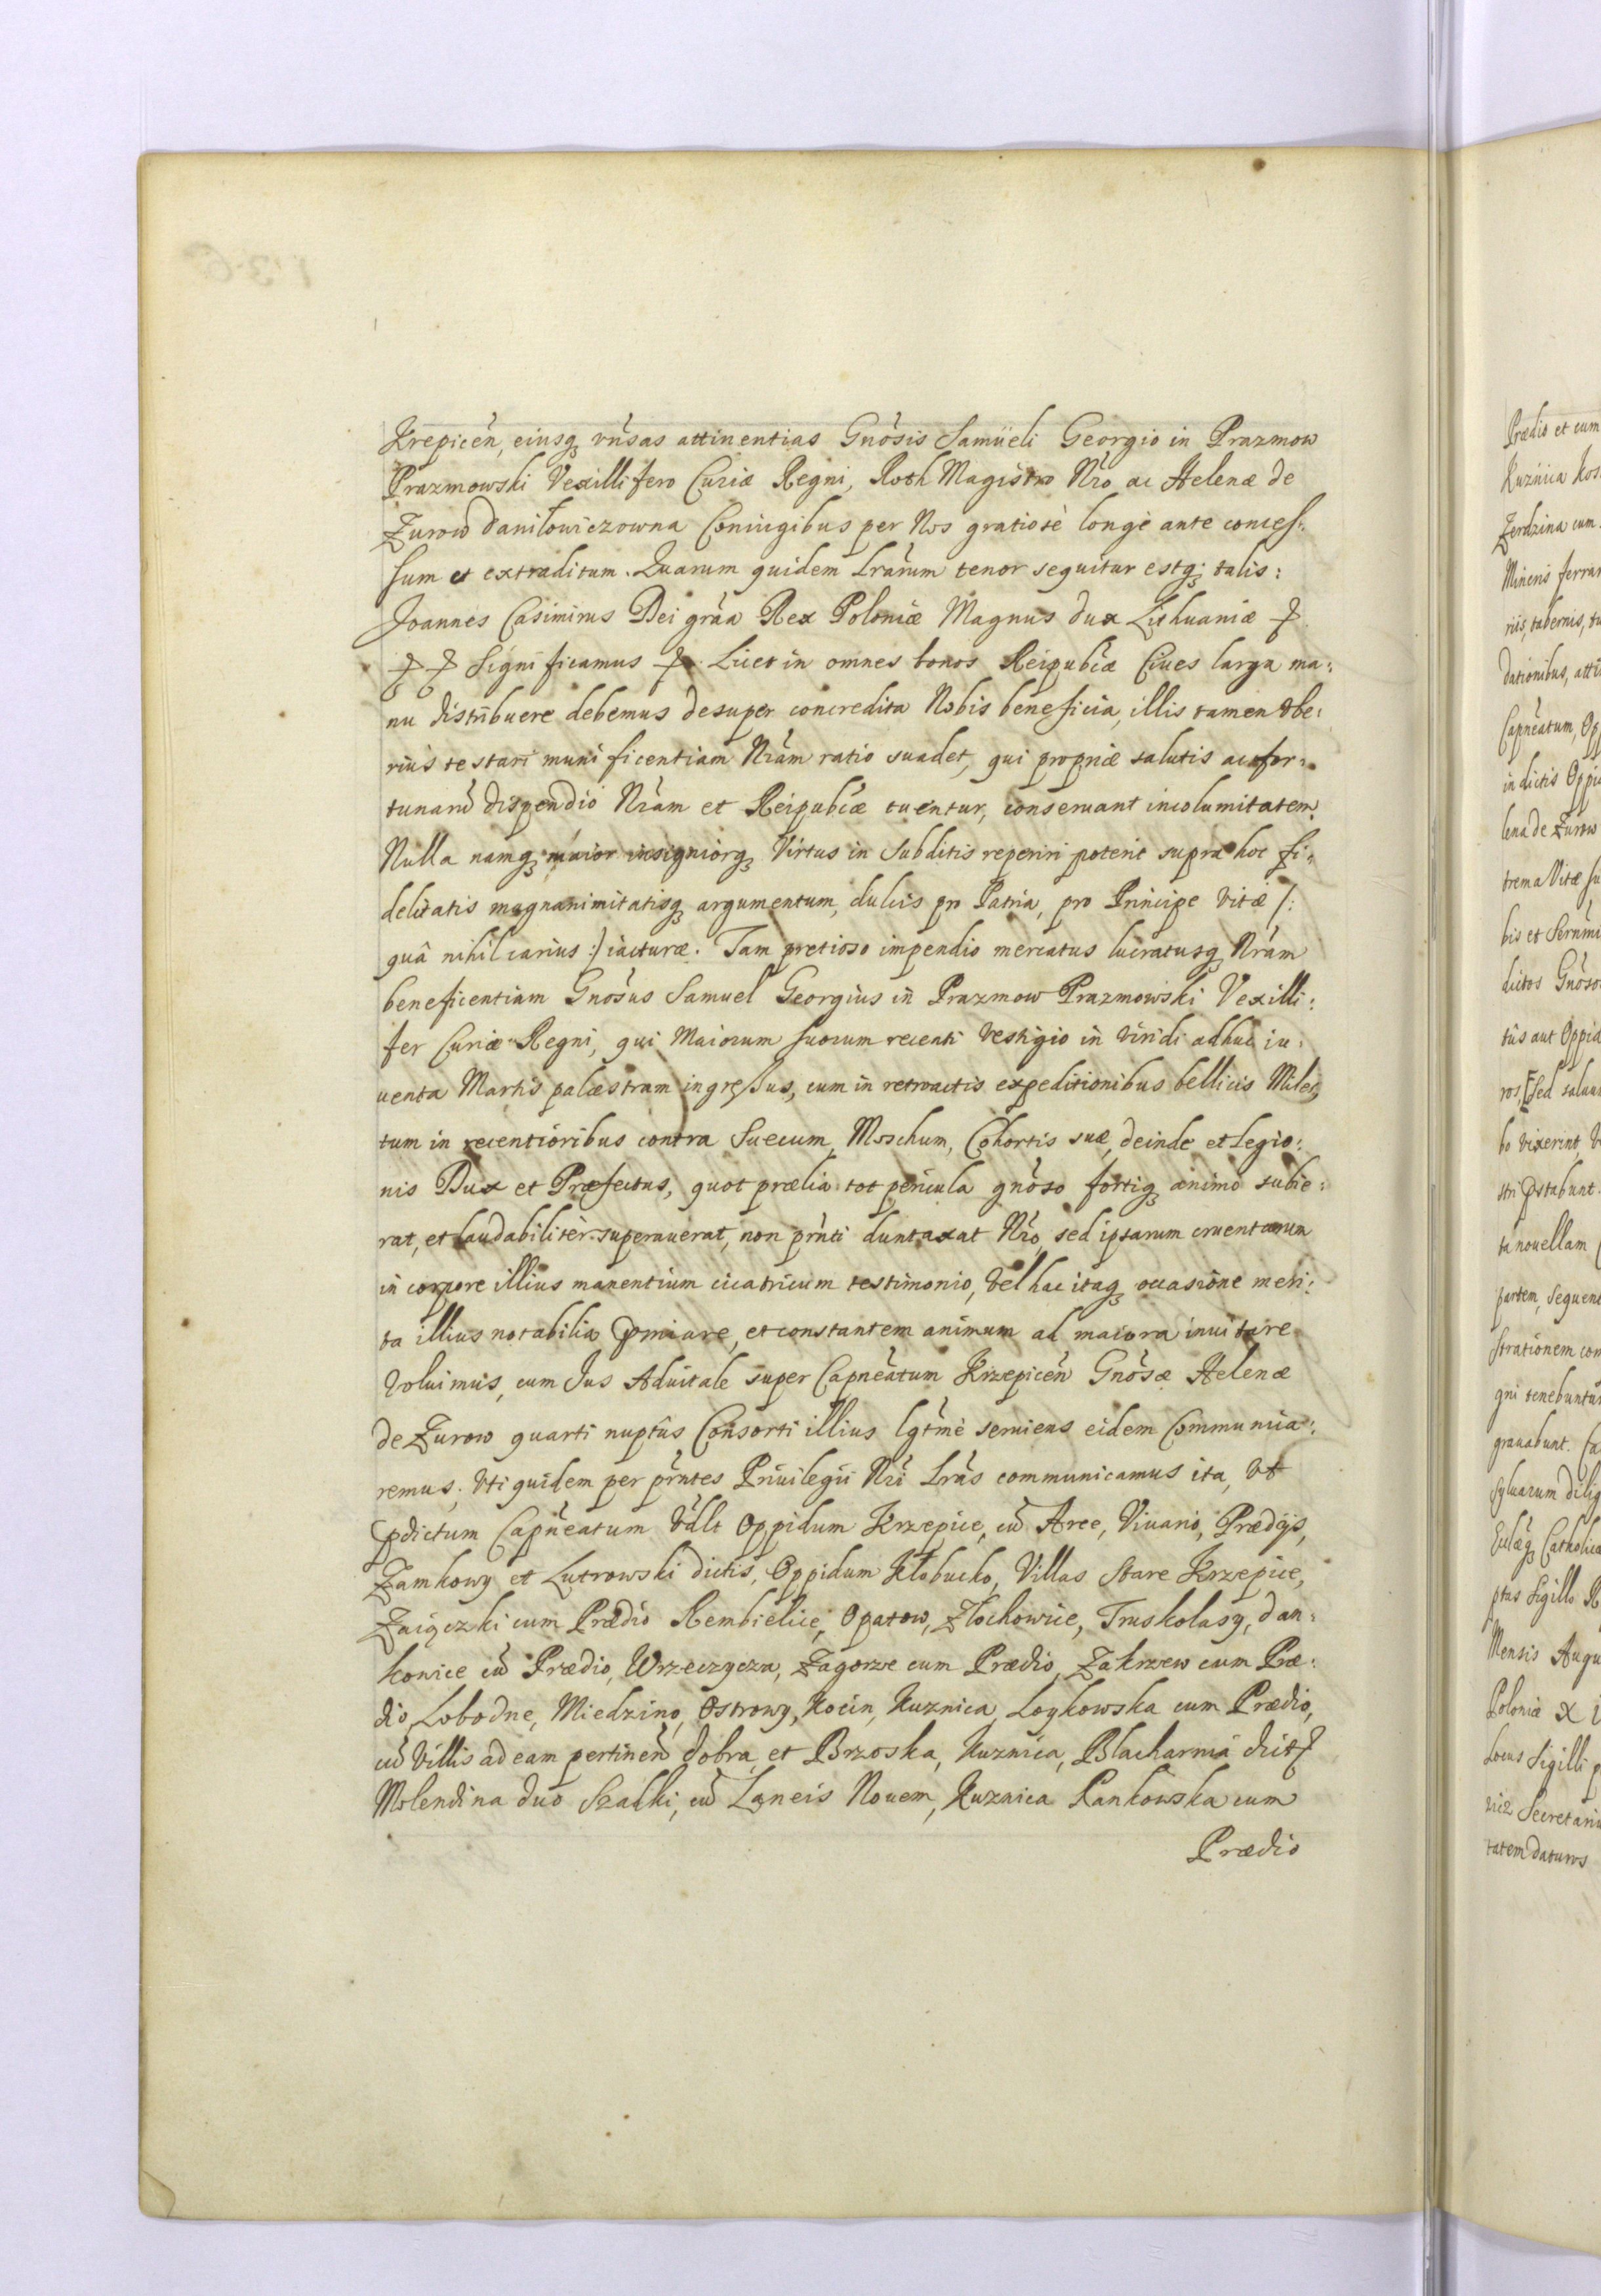 Krepicen̄, eiusq₃ vn̄sas attinentias Gnōsis Samüeli Georgio in Prazmow
Prazmowski Vexillifero Curiæ Regni, Roth Magistro Nrō ac Helenæ de
Zurow daniłowiczowna Coniugibus per Nos gratiosè longè ante conces:
sum et extraditum. Quarum quidem Lrārum tenor sequitur estq₃ talis:
Joannes Casimirus Dei grāa Rex Poloniæ Magnus dux Lithuaniæ
Significamus Licet in omnes bonos Reipubcæ Ciues larga ma:
nu distribuere debemus desuper concredita Nobis beneficia, illis tamen vbe:
rius testari munificentiam Nrām ratio suadet, qui propriæ salutis ac for:
tunarū dispendio Nrām et Reipubcæ tuentur, conseruant incolumitatem
Nulla namq₃ maior insigniorq₃ Virtus in Subditis reperiri poterit supra hoc fi:
delitatis magnanimitatisq₃ argumentum, dulcis pro Patria, pro Principe vitæ /:
quâ nihil carius :/ iacturæ. Tam pretioso impendio mercatus lucratusq₃ Nrām
beneficentiam Gnōsus Samuel Georgius in Prazmow Prazmowski Vexilli:
fer Curiæ Regni, qui Maiorum suorum recenti vestigio in viridi adhuc iu:
uenta Martis palæstram ingressus, cum in retroactis expeditionibus bellicis Miles,
tum in recentioribus contra Suecum, Moschum, Cohortis suæ, deinde et legio:
nis Dux et Præfectus, quot prælia tot pericula gnōso fortiq₃ animo subie:
rat, et laudabilitèr superauerat, non prn̄ti duntaxat Nrō, sed ipsarum cruentarum
in corpore illius manentium cicatricum testimonio, vel hac itaq₃ occasione meri:
ta illius notabilia pmiare, et constantem animum ad maiora inuitare
voluimus, cum Jus Aduitale super Capnēatum Krzepicen̄ Gnōsæ Helenæ
de Zurow quarti nuptûs Consorti illius lgtmè seruiens eidem Communica:
remus. Vti quidem per prn̄tes Priuilegii Nrī Lrās communicamus ita, vt
pdictum Capnēatum vdlt Oppidum Krzepice, cū Arce, Viuario, Prædijs,
Zamkowy et Lutrowski dictis, Oppidum Kłobucko, Villas Stare Krzepice,
Zaiączki cum Prædio Rembielice, Opatow, Złochowice, Truskolasy, dan:
kowice cū Prædio, Wrzeczycza, Zagorze cum Prædio, Zakrzew cum Præ:
dio, Lobodne, Miedzino, Ostrowy, Kocin, Kuznica, Loykowska cum Prædio,
cū Villis ad eam pertinen̄ dobra, et Brzoska, Kuznica, Blacharnia dict
Molendina duo Szalki, cū Laneis Nouem, Kuznica Pankowska cum
Prædio
Prædio et cum
Kuznica Kos
Zerdzina cum
Mineris ferrar
riis, tabernis, tu
dationibus, atti
Capnēatum, Op
in dictis Oppi
lena de Zurow
trema Vitæ su
bis et Sern̄mi
dictos Gnōso
tûs aut Oppid
ros, Sed saluu
bo vixerint, v
stri pstabunt.
ta nouellam
partem, sequen
strationem com
gni tenebuntur
grauabunt. Ca
syluarum dilig
Catholica
ptas Sigillo R
Mensis Augu
Poloniæ
Locus Sigilli p
Secretari
tatem daturos